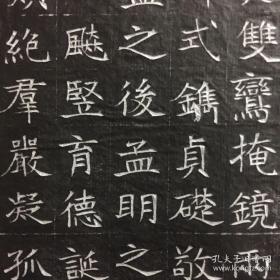 雙鸞掩鏡
式鐫貞礎敬
之後孟明之
豎育德誕
絕羣嚴凝孤
孔夫子旧书网